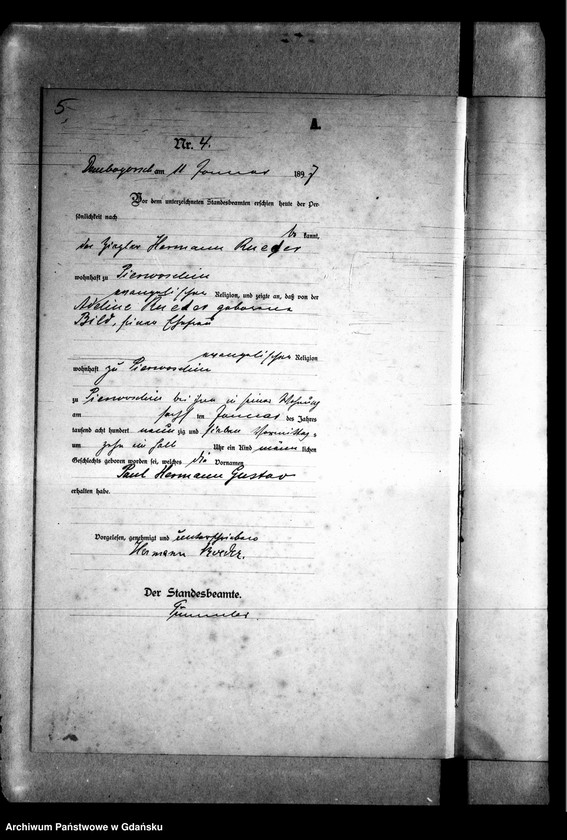 5.
A.
Nr. 4.
Dembogorsch am 11 Januar 1897
Vor dem unterzeichneten Standesbeamten erschien heute der Per-
sönlichkeit nach
be kannt,
der Ziegler Hermann Rueder
wohnhaft zu Pierwoschin
evangelischer Religion, und zeigte an, daß von der
Adeline Rueder geborene
Bild, seiner Ehefrau
evangelischer Religion
wohnhaft zu Pierwoschin
zu Pierwoschin bei ihm in seiner Wohnung
am sechs ten Januar des Jahres
tausend acht hundert neun zig und sieben Vormittag s
um zehn ein halb Uhr ein Kind männ lichen
Geschlechts geboren worden sei, welches die Vornamen
Paul Hermann Gustav
erhalten habe.
Vorgelesen, genehmigt und unterschrieben
Hermann
Der Standesbeamte.